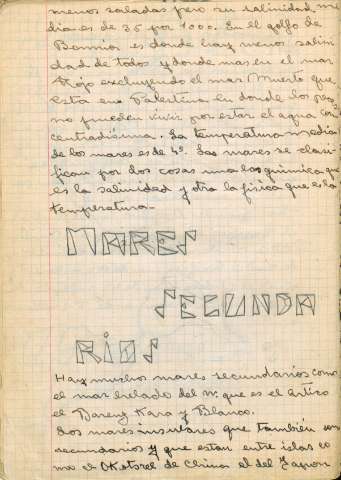 menos saladas pero su salinidad me
dia es de 35 por 1000. En el golfo de
Bonnia es donde hay menos salini
dad de todos y donde mas en el mar
Rojo excluyendo el mar Muerto que
está en Palertina en donde los peces
no pueden vivir por estar el agua con
centradísima. La temperatura media
de los mares es de 4º. Los mares se clasi-
fican por dos cosas una la química que
es la salinidad y otra la física que es la
temperatura.-
MARES
SECUNDA
RIOS
Hay muchos mares secundarios como
el mar helado del N. que es el Artico
el Bareng Kara y Blanco.
Los mares insulares que también son
secundarios y que estan entre islas co
mo el Okotsk de China el del Japon